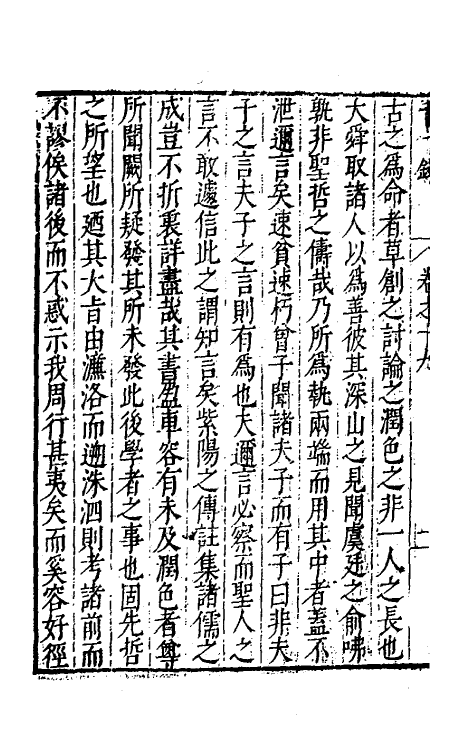 卷之十九
古之爲命者草創之討論之潤色之非一人之長也
大舜取諸人以爲善彼其深山之見聞虞廷之俞咈
孰非聖哲之儔哉乃所爲執兩端而用其中者蓋不
泄邇言矣速貧速朽曾子聞諸夫子而有子曰非夫
子之言夫子之言則有爲也夫邇言必察而聖人之
言不敢遽信此之謂知言矣紫陽之傳註集諸儒之
成豈不折衷詳盡哉其書盈車容有未及潤色者尊
所聞闕所疑發其所未發此後學者之事也固先哲
之所望也廼其大旨由濂洛而遡洙泗則考諸前而
不謬俟諸後而不惑示我周行甚夷矣而奚容好徑